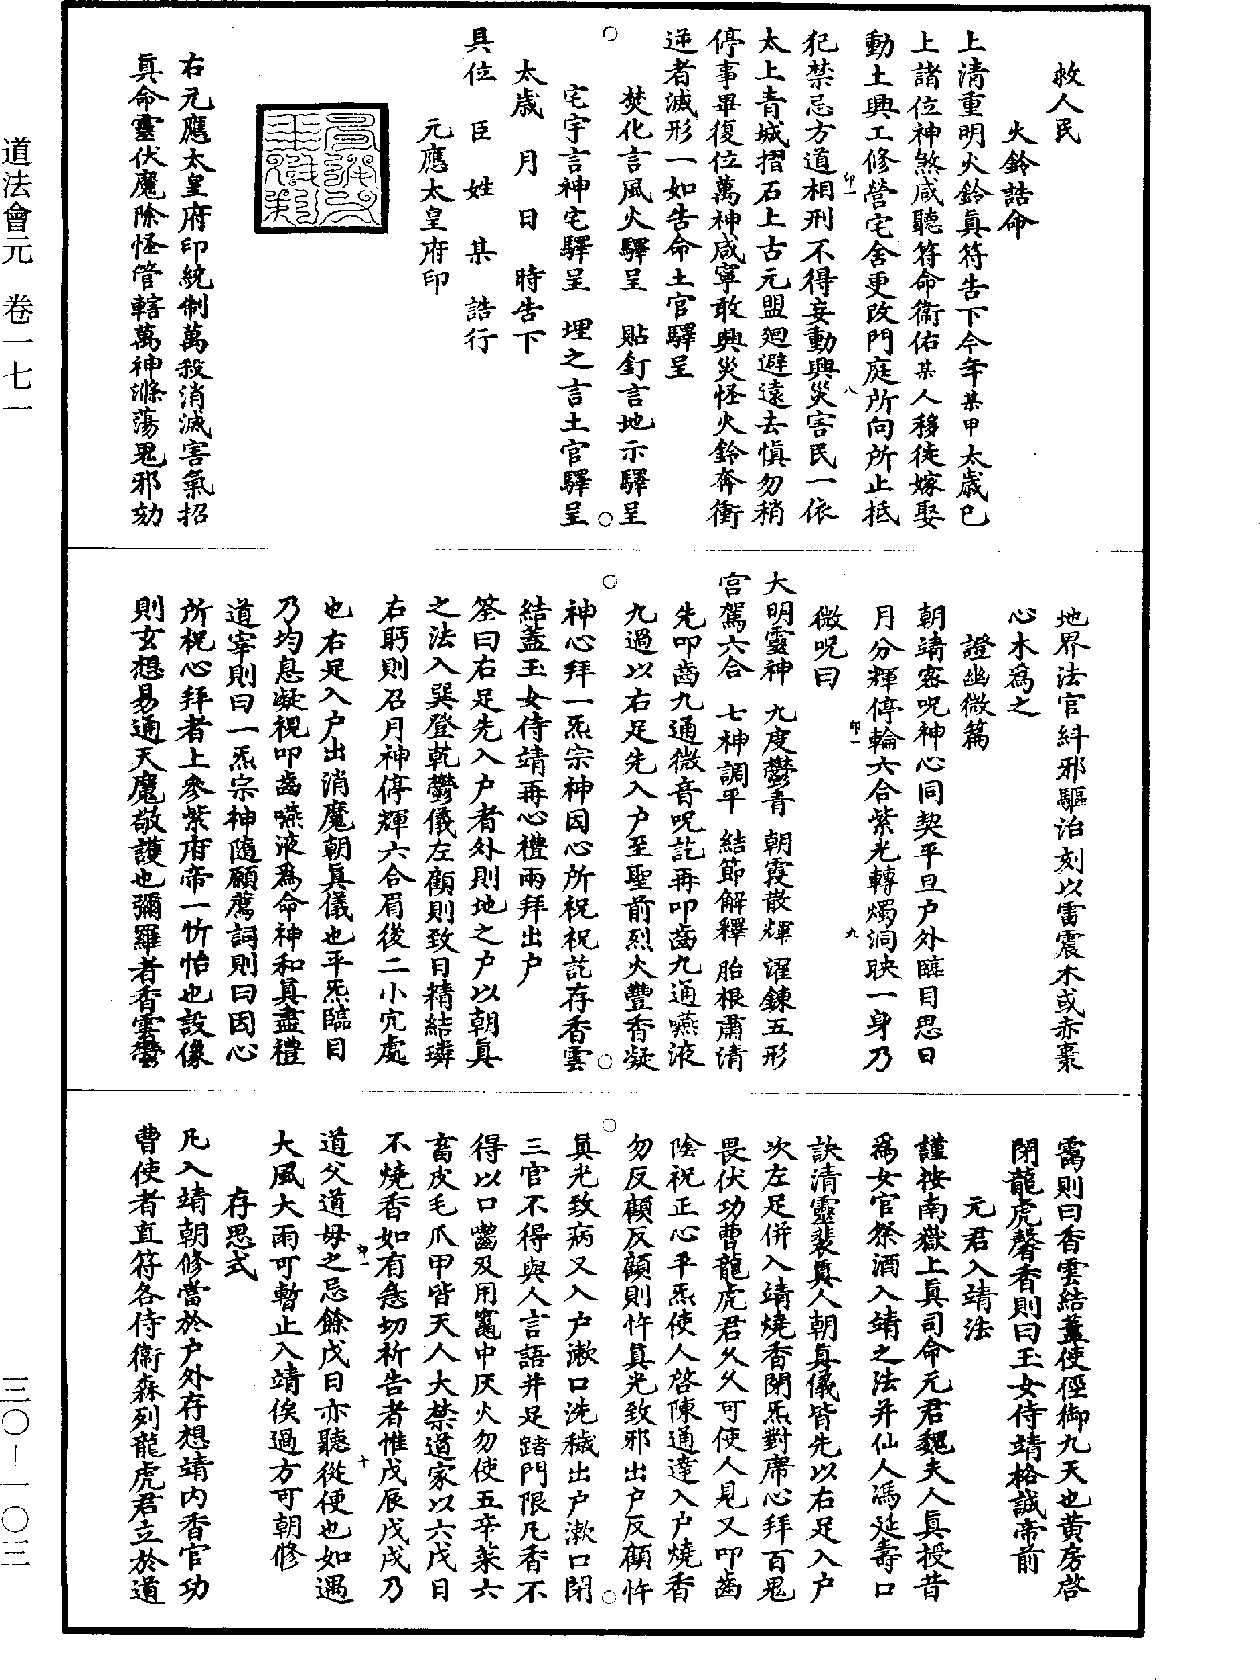 救人民
火鈴誥命
上清重明火鈴真符告下今年某甲太歲已
上諸位神煞咸聽符命衛佑某人移徙嫁娶
動土興工修營宅舍更改門庭所向所止抵
犯禁忌方道相刑不得妄動興災害民一依
太上青城摺石上古元盟迴避遠去慎勿稍
停事畢復位萬神咸寧敢興災怪火鈴奔衝
逆者滅形一如告命土官驛呈
焚化言風火驛呈　貼釘言地示驛呈
宅宇言神宅驛呈　埋之言土官驛呈
太歲　月　日　時告下
具位　臣　姓　某　誥行
元應太皇府印
右元應太皇府印統制萬殺消滅害氣招
真命靈伏魔除怪管轄萬神滌蕩鬼邪劾
地界法官糾邪驅治刻以雷震木或赤棗
心木為之
證幽微篇
朝靖密呪神心同契平旦戶外臨目思日
月分輝停輪六合紫光轉燭洞映一身乃
微呪曰
大明靈神　九度鬱青　朝霞散輝　濯鍊五形
宮駕六合　七神調平　結節解釋　胎根肅清
先叩齒九通微音呪訖再叩齒九通嚥液
九過以右足先入戶至聖前烈火豐香凝
神心拜一炁宗神因心所祝祝訖存香雲
結蓋玉女侍靖再心禮兩拜出戶
筌曰右足先入戶者外則地之戶以朝真
之法入巽登乾鬱儀左顧則致日精結璘
右眄則召月神停輝六合眉後二小宂處
也右足入戶出消魔朝真儀也平炁臨目
乃均息凝視叩齒嚥液為命神和真盡禮
道宰則曰一炁宗神隨願薦詞則曰因心
所祝心拜者上參紫府帝一忻怡也設像
則玄想易通天魔敬護也彌羅者香雲靉
靄則曰香雲結蓋使徑御九天也黃房啓
閉龍虎馨香則曰玉女侍靖格誠帝前
元君入靖法
謹按南嶽上真司命元君魏夫人真授昔
為女官祭酒入靖之法并仙人馮延壽口
訣清靈裴真人朝真儀皆先以右足入戶
次左足併入靖燒香閉炁對席心拜百鬼
畏伏功曹龍虎君久久可使人見又叩齒
陰祝正心平炁使人啓陳通達入戶燒香
勿反顧反顧則忤真光致邪出戶反顧忤
真光致病又入戶漱口洗穢出戶漱口閉
三官不得與人言語并足踏門限凡香不
得以口嚙及用竈中灰火勿使五辛菜六
畜皮毛爪甲皆天人大禁道家以六戊日
不燒香如有急切祈告者惟戊辰戊戌乃
道父道母之忌餘戊日亦聽從便也如遇
大風大雨可暫止入靖俟過方可朝修
存思式
凡入靖朝修當於戶外存想靖內香官功
曹使者直符各侍衛森列龍虎君立於道
道法會元　卷一七一
三〇—一〇三